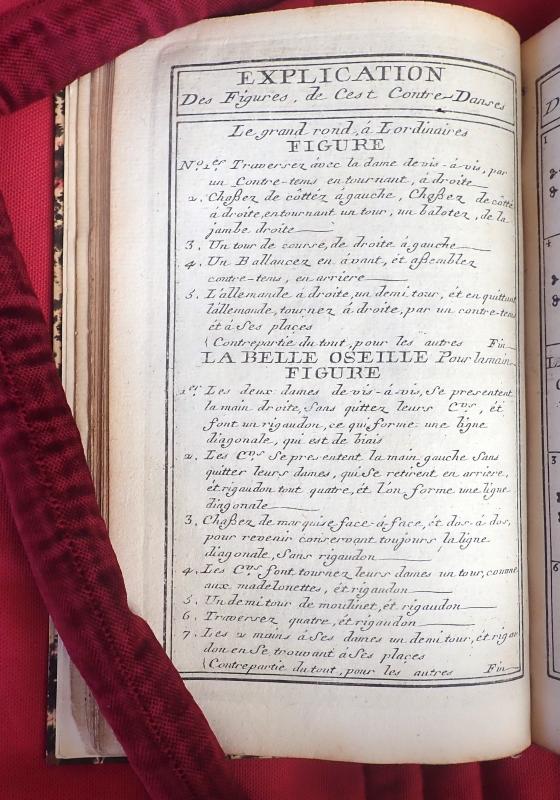 EXPLICATION
Des Figures, de Cest Contre-Danses
Le grand rond, á Lordinaires
FIGURE
No. 1er Traversez ávec la dame de vis-á-vis, par
un Contre-tems en tournant, á droite
2. Chaßez de côttéz ágauche, Chaßez de côtté
á droite, entournant un tour, un balotez, de la
jambe droite
3. Un tour de course, de droite ágauche
4. Un Ballancez en ávant, ét aßemblez
contre-tems, en arriere
5. L'allemande á droite, un demi tour, ét en quittant
lallemande, tournez á droite, par un contre-tems
ét á Ses places
(Contrepartie du tout, pour les autres Fin
LA BELLE OSEILLE Pour lamain
FIGURE
1er Les deux dames de vis-á-vis, Se presentent
la main droite, Sans quittez leurs Cvrs, ét
font un rigaudon, ce qui forme une ligne
diagonale, qui est de biais
2. Les Cvrs Se presentent la main gauche Sans
quitter leurs dames, qui Se retirent en arriere,
ét rigaudon tout quatre, ét l'on forme une ligne
diagonale
3. Chaßez de marquise face-á-face, ét dos-á-dos,
pour revenir conservant toujours la ligne
diagonale, Sans rigaudon
4. Les Cvrs font tournez leurs dames un tour, comme
aux madelonettes, ét rigaudon
5. Un demi tour de moulinet, ét rigaudon
6. Traversez quatre, ét rigaudon
7. Les 2 mains á Ses dames un demi tour, ét rigau
don en Se trouvant á Ses places
(Contre partie du tout, pour les autres Fin